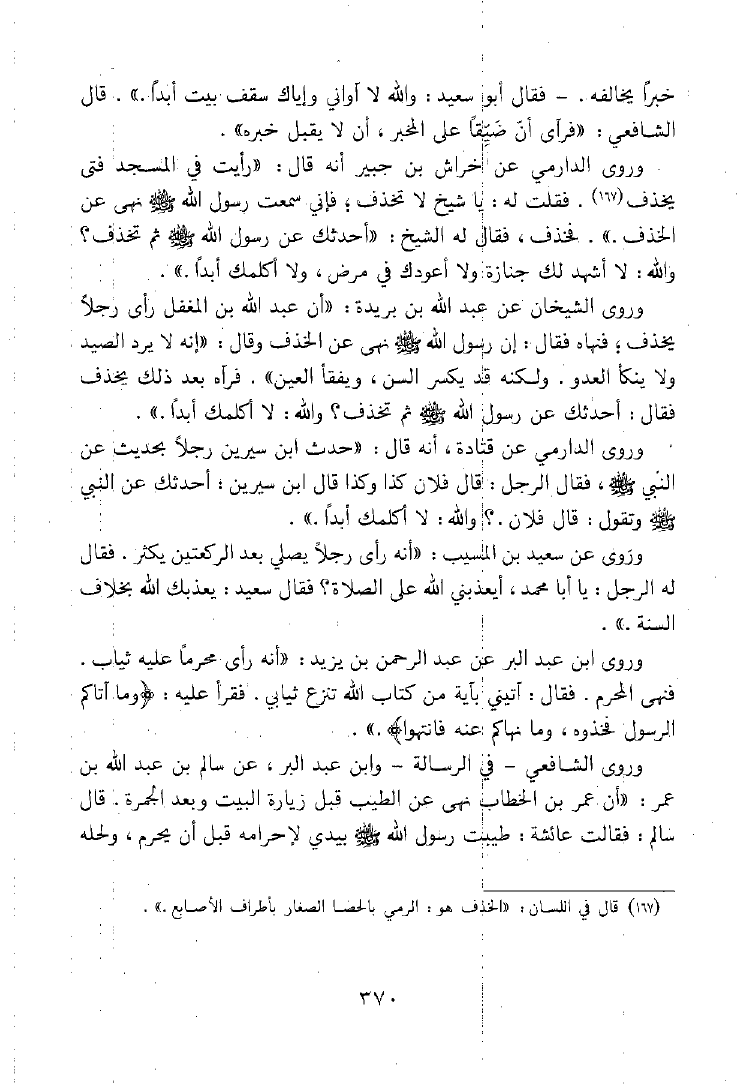 خبراً يخالفه . – فقال أبو سعيد : والله لا آواني وإياك سقف بيت أبداً .» . قال
الشافعي : «فرأى أنّ ضَيِّقاً على المخبر ، أن لا يقبل خبره» .
وروى الدارمي عن خراش بن جبير أنه قال : «رأيت في المسجد فتى
يخذف (١٦٧) . فقلت له : يا شيخ لا تخذف ؛ فإني سمعت رسول الله ﷺ نهى عن
الخذف .» . فخذف ، فقال له الشيخ : «أحدثك عن رسول الله ﷺ ثم تخذف؟
والله : لا أشهد لك جنازة ولا أعودك في مرض ، ولا أكلمك أبداً .» .
وروى الشيخان عن عبد الله بن بريدة : «أن عبد الله بن المغفل رأى رجلاً
يخذف ؛ فنهاه فقال : إن رسول الله ﷺ نهى عن الخذف وقال : «إنه لا يرد الصيد
ولا ينكأ العدو . ولكنه قد يكسر السن ، ويفقأ العين» . فرآه بعد ذلك يخذف
فقال : أحدثك عن رسول الله ﷺ ثم تخذف؟ والله : لا أكلمك أبداً .» .
وروى الدارمي عن قتادة ، أنه قال : «حدث ابن سيرين رجلاً بحديث عن
النبي ﷺ ، فقال الرجل : قال فلان كذا وكذا قال ابن سيرين : أحدثك عن النبي
ﷺ وتقول : قال فلان .؟ والله : لا أكلمك أبداً .» .
وروى عن سعيد بن المسيب : «أنه رأى رجلاً يصلي بعد الركعتين يكثر . فقال
له الرجل : يا أبا محمد ، أيعذبني الله على الصلاة؟ فقال سعيد : يعذبك الله بخلاف
السنة .» .
وروى ابن عبد البر عن عبد الرحمن بن يزيد : «أنه رأى محرماً عليه ثياب .
فنهى المحرم . فقال : آتيني بآية من كتاب الله تنزع ثيابي . فقرأ عليه : ﴿وما آتاكم
الرسول فخذوه ، وما نهاكم عنه فانتهوا﴾ .» .
وروى الشافعي – في الرسالة – وابن عبد البر ، عن سالم بن عبد الله بن
عمر : «أن عمر بن الخطاب نهى عن الطيب قبل زيارة البيت وبعد الجمرة . قال
سالم : فقالت عائشة : طيبت رسول الله ﷺ بيدي لإحرامه قبل أن يحرم ، ولحله
(١٦٧) قال في اللسان : «الخذف هو : الرمي بالحصا الصغار بأطراف الأصابع .» .
٣٧٠